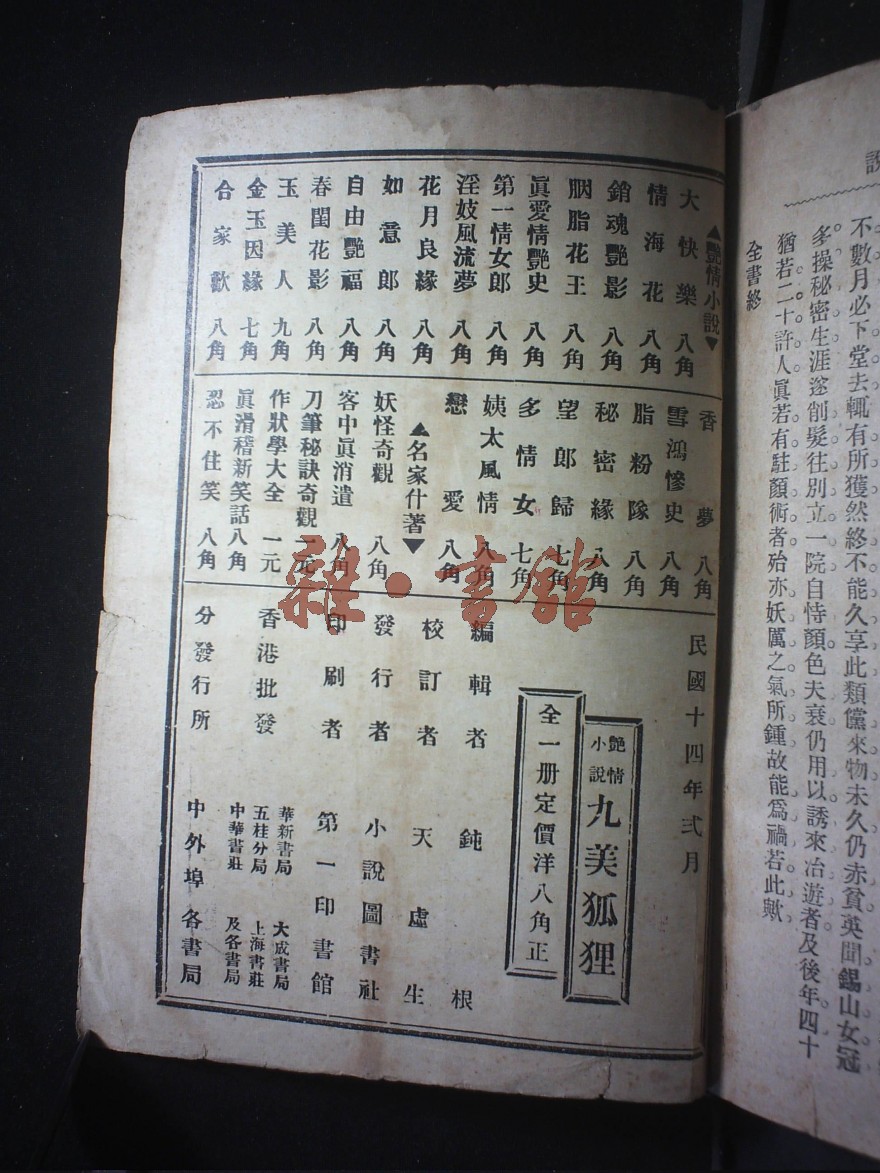 不數月必下堂去輒有所獲然終不能久享此類儻來物未久仍赤貧英聞錫山女冠
多操秘密生涯遂削髮往別立一院自恃顏色夫衰仍用以誘來冶遊者及後年四十
猶若二十許人眞若有駐顏術者殆亦妖厲之氣所鍾故能爲禍若此歟
全書終
▲艷情小說▼
大快樂 八角
情海花 八角
銷魂艷影 八角
胭脂花王 八角
眞愛情艷史 八角
第一情女郎 八角
淫妓風流夢 八角
花月良緣 八角
如意郎 八角
自由艷福 八角
春閨花影 八角
玉美人 九角
金玉因緣 七角
合家歡 八角
香夢 八角
雪鴻慘史 八角
脂粉隊 八角
秘密緣 八角
望郎歸 七角
多情女 七角
姨太風情 八角
戀愛 八角
▲名家什著▼
妖怪奇觀 八角
客中眞消遣 八角
刀筆秘訣奇觀 一元
作狀學大全 一元
眞滑稽新笑話 八角
忍不住笑 八角
民國十四年弍月
艷情小說 九美狐狸
全一册定價洋八角正
編輯者 鈍根
校訂者 天虛生
發行者 小說圖書社
印刷者 第一印書館
香港批發 華新書局 大成書局
五桂分局 上海書莊
中華書莊 及各書局
分發行所 中外埠各書局
雜·書館